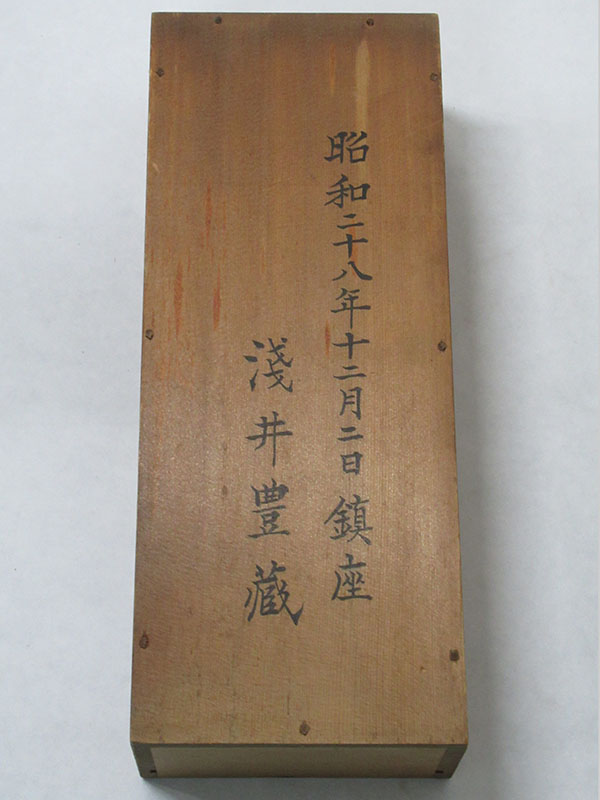 昭和二十八年十二月二日鎮座
淺井豊藏